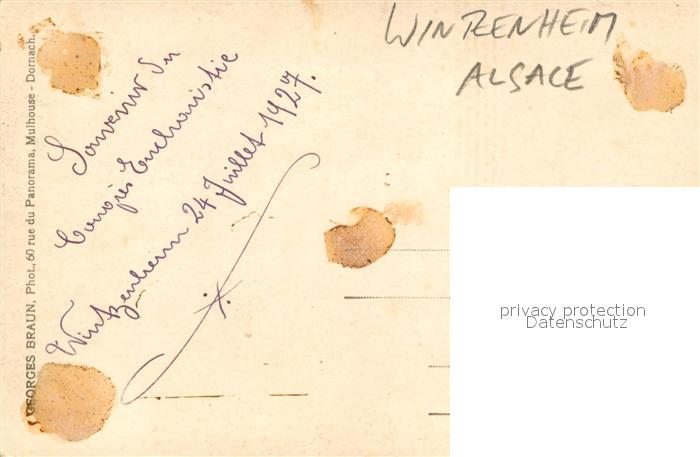 WINTZENHEIM
ALSACE
Souvenir du
Congrès Eucharistie
Wintzenheim 24 Juillet 1927.
GEORGES BRAUN, Phot., 60 rue du Panorama, Mulhouse - Dornach.
privacy protection
Datenschutz